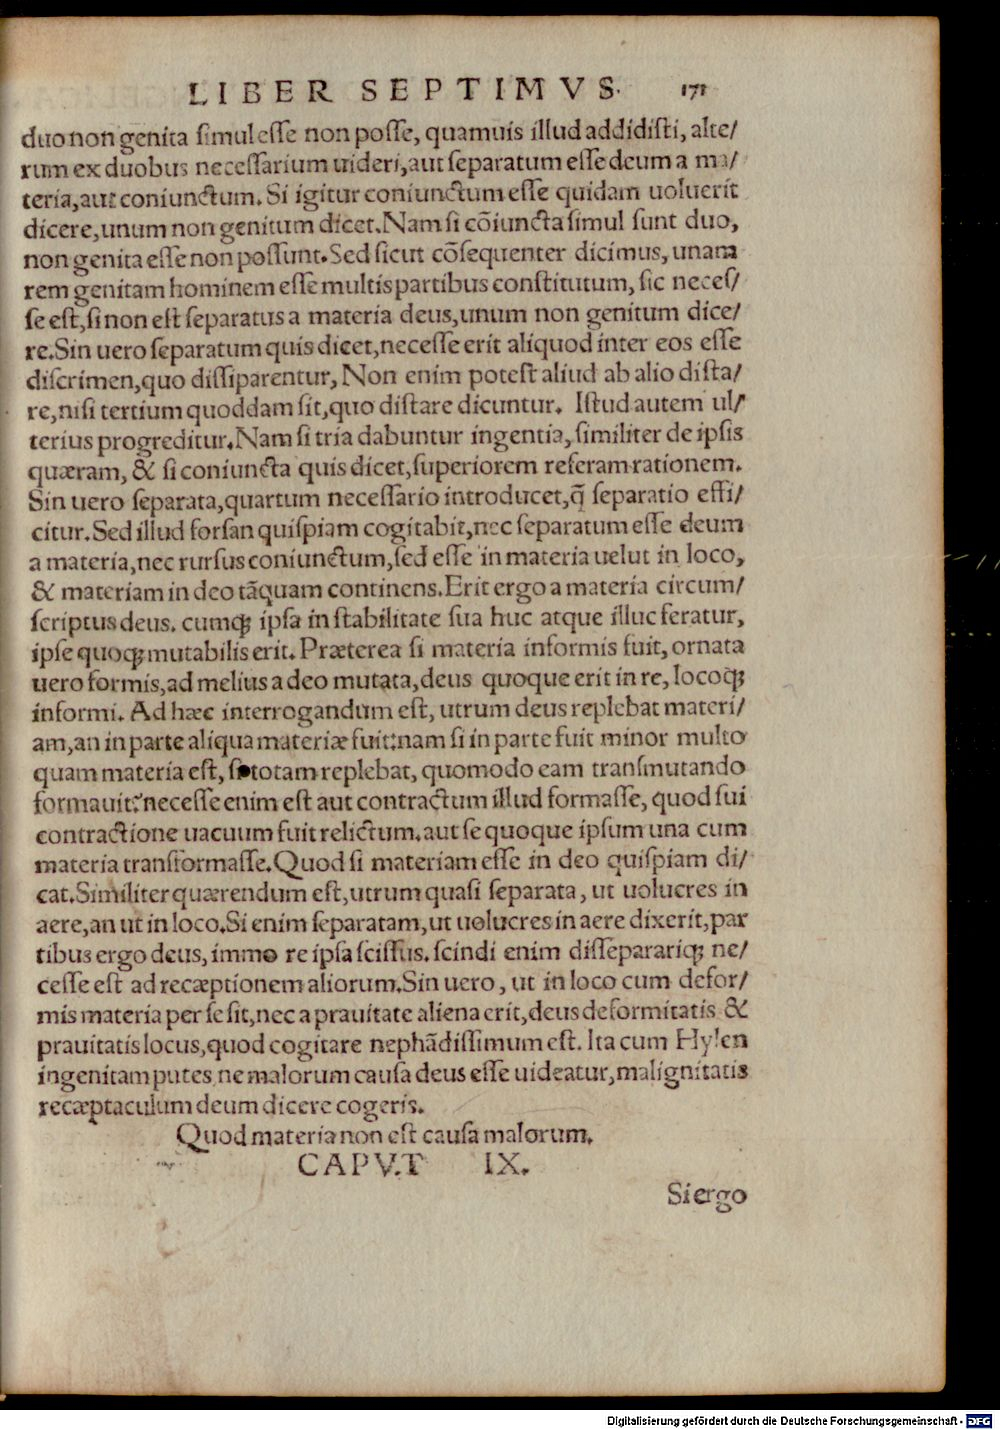 LIBER SEPTIMVS. 171
duo non genita simul esse non posse, quamuis illud addidisti, alte/
rum ex duobus necessarium uideri, aut separatum esse deum a ma/
teria, aut coniunctum. Si igitur coniunctum esse quidam uoluerit
dicere, unum non genitum dicet. Nam si cōiuncta simul sunt duo,
non genita esse non possunt. Sed sicut cōsequenter dicimus, unam
rem genitam hominem esse multis partibus constitutum, sic neces/
se est, si non est separatus a materia deus, unum non genitum dice/
re. Sin uero separatum quis dicet, necesse erit aliquod inter eos esse
discrimen, quo dissiparentur, Non enim potest aliud ab alio dista/
re, nisi tertium quoddam sit, quo distare dicuntur. Istud autem ul/
terius progreditur. Nam si tria dabuntur ingentia, similiter de ipsis
quæram, & si coniuncta quis dicet, superiorem referam rationem.
Sin uero separata, quartum necessario introducet, q̄ separatio effi/
citur. Sed illud forsan quispiam cogitabit, nec separatum esse deum
a materia, nec rursus coniunctum, sed esse in materia uelut in loco,
& materiam in deo tāquam continens. Erit ergo a materia circum/
scriptus deus. cumq; ipsa instabilitate sua huc atque illuc feratur,
ipse quoq; mutabilis erit. Præterea si materia informis fuit, ornata
uero formis, ad melius a deo mutata, deus quoque erit in re, locoq;
informi. Ad hæc interrogandum est, utrum deus replebat materi/
am, an in parte aliqua materiæ fuit: nam si in parte fuit minor multo
quam materia est, si totam replebat, quomodo eam transmutando
formauit? necesse enim est aut contractum illud formasse, quod sui
contractione uacuum fuit relictum. aut se quoque ipsum una cum
materia transformasse. Quod si materiam esse in deo quispiam di/
cat. Similiter quærendum est, utrum quasi separata, ut uolucres in
aere, an ut in loco. Si enim separatam, ut uolucres in aere dixerit, par
tibus ergo deus, immo re ipsa scissus. scindi enim disseparariq; ne/
cesse est ad recæptionem aliorum. Sin uero, ut in loco cum defor/
mis materia per se sit, nec a prauitate aliena erit, deus deformitatis &
prauitatis locus, quod cogitare nephādissimum est. Ita cum Hylen
ingenitam putes, ne malorum causa deus esse uideatur, malignitatis
recæptaculum deum dicere cogeris.
Quod materia non est causa malorum.
CAPVT IX.
Si ergo
Digitalisierung gefördert durch die Deutsche Forschungsgemeinschaft - DFG